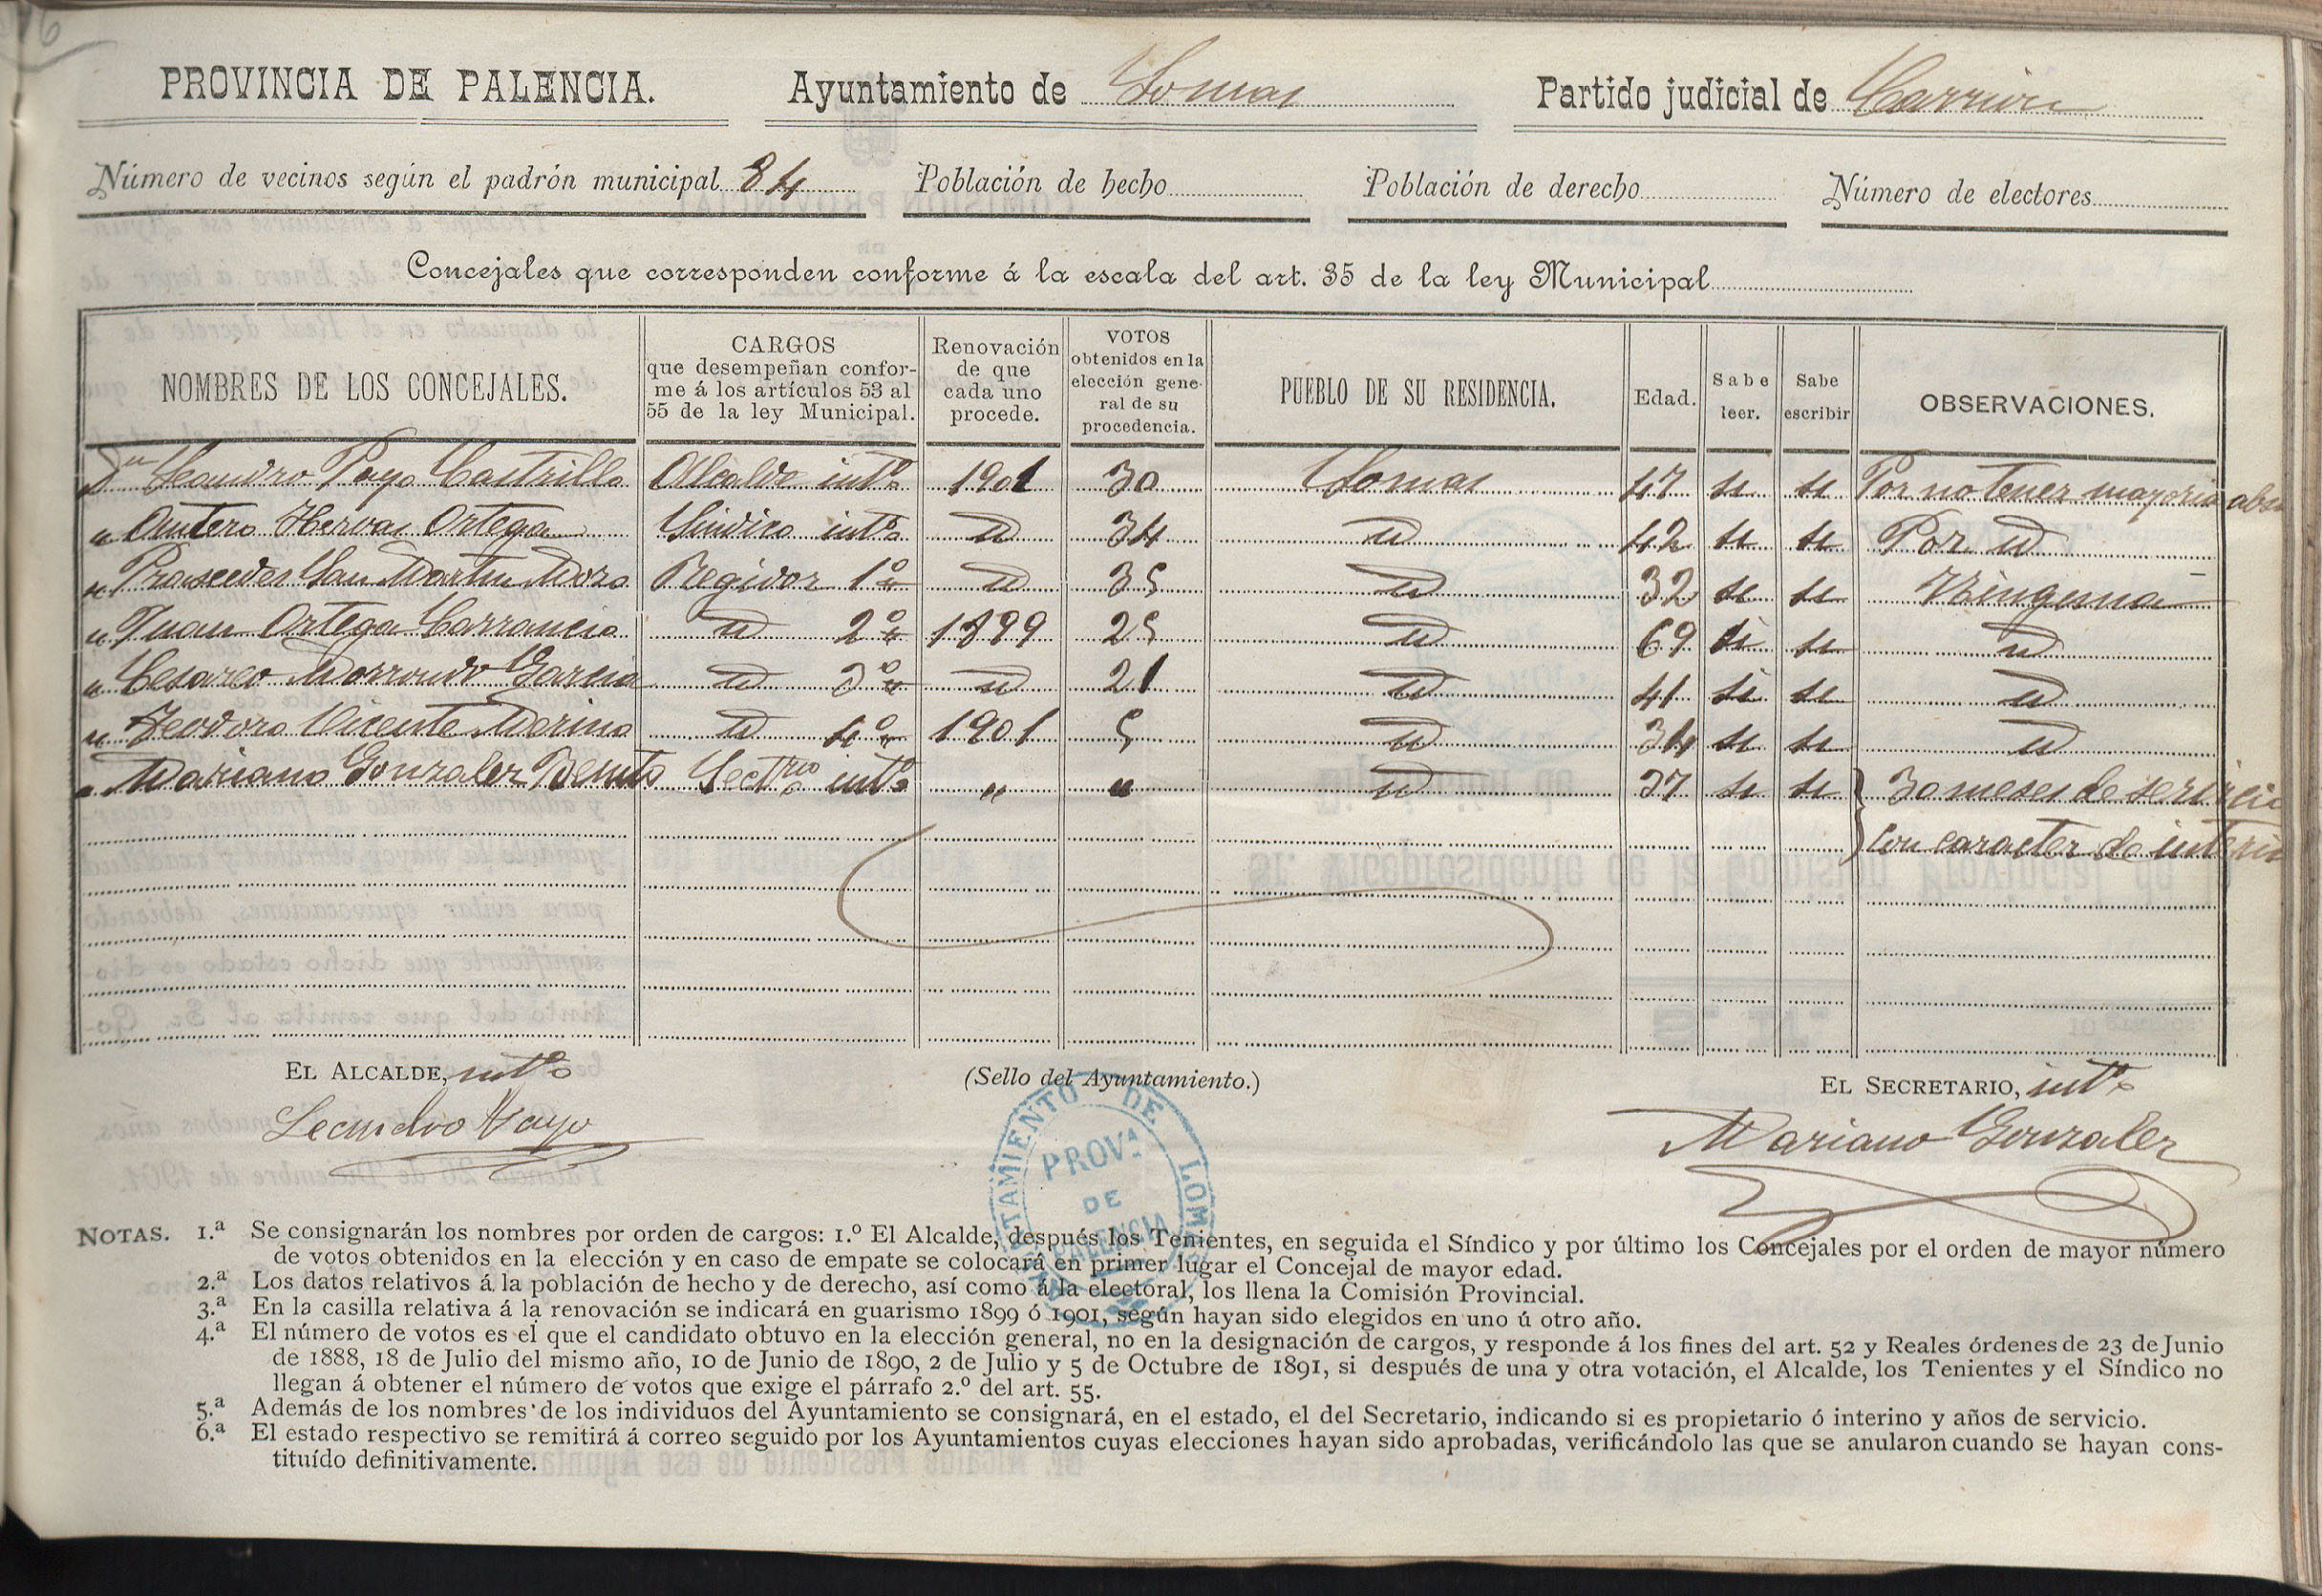 PROVINCIA DE PALENCIA. Ayuntamiento de Lomas Partido judicial de Carrión
Número de vecinos según el padrón municipal 84 Población de hecho Población de derecho Número de electores
Concejales que corresponden conforme á la escala del art. 35 de la ley Municipal
NOMBRES DE LOS CONCEJALES. CARGOS que desempeñan conforme á los artículos 53 al 55 de la ley Municipal. Renovación de que cada uno procede. VOTOS obtenidos en la elección general de su procedencia. PUEBLO DE SU RESIDENCIA. Edad. Sabe leer. Sabe escribir OBSERVACIONES.
Dn Leandro Payo Castrillo Alcalde intº 1901 30 Lomas 47 si si Por no tener mayoria abs
" Antero Hervas Ortega Sindico intº id 34 id 42 si si Por id
" Praxedes San Martin Moro Regidor 1º id 35 id 32 si si Ninguna
" Juan Ortega Carrancio id 2º 1899 25 id 69 si si id
" Cesareo Morrondo Garcia id 3º id 21 id 41 si si id
" Teodoro Vicente Merino id 4º 1901 5 id 34 si si id
" Mariano Gonzalez Benito Sectrio intº " " id 37 si si 30 meses de servicio
con caracter de interin
EL ALCALDE, intº (Sello del Ayuntamiento.) EL SECRETARIO, intº
Leandro Payo Mariano Gonzalez
AYUNTAMIENTO DE LOMAS
PROV.ª
DE
PALENCIA
NOTAS. 1.ª Se consignarán los nombres por orden de cargos: 1.º El Alcalde, después los Tenientes, en seguida el Síndico y por último los Concejales por el orden de mayor número
de votos obtenidos en la elección y en caso de empate se colocará en primer lugar el Concejal de mayor edad.
2.ª Los datos relativos á la población de hecho y de derecho, así como á la electoral, los llena la Comisión Provincial.
3.ª En la casilla relativa á la renovación se indicará en guarismo 1899 ó 1901, según hayan sido elegidos en uno ú otro año.
4.ª El número de votos es el que el candidato obtuvo en la elección general, no en la designación de cargos, y responde á los fines del art. 52 y Reales órdenes de 23 de Junio
de 1888, 18 de Julio del mismo año, 10 de Junio de 1890, 2 de Julio y 5 de Octubre de 1891, si después de una y otra votación, el Alcalde, los Tenientes y el Síndico no
llegan á obtener el número de votos que exige el párrafo 2.º del art. 55.
5.ª Además de los nombres de los individuos del Ayuntamiento se consignará, en el estado, el del Secretario, indicando si es propietario ó interino y años de servicio.
6.ª El estado respectivo se remitirá á correo seguido por los Ayuntamientos cuyas elecciones hayan sido aprobadas, verificándolo las que se anularon cuando se hayan cons-
tituído definitivamente.